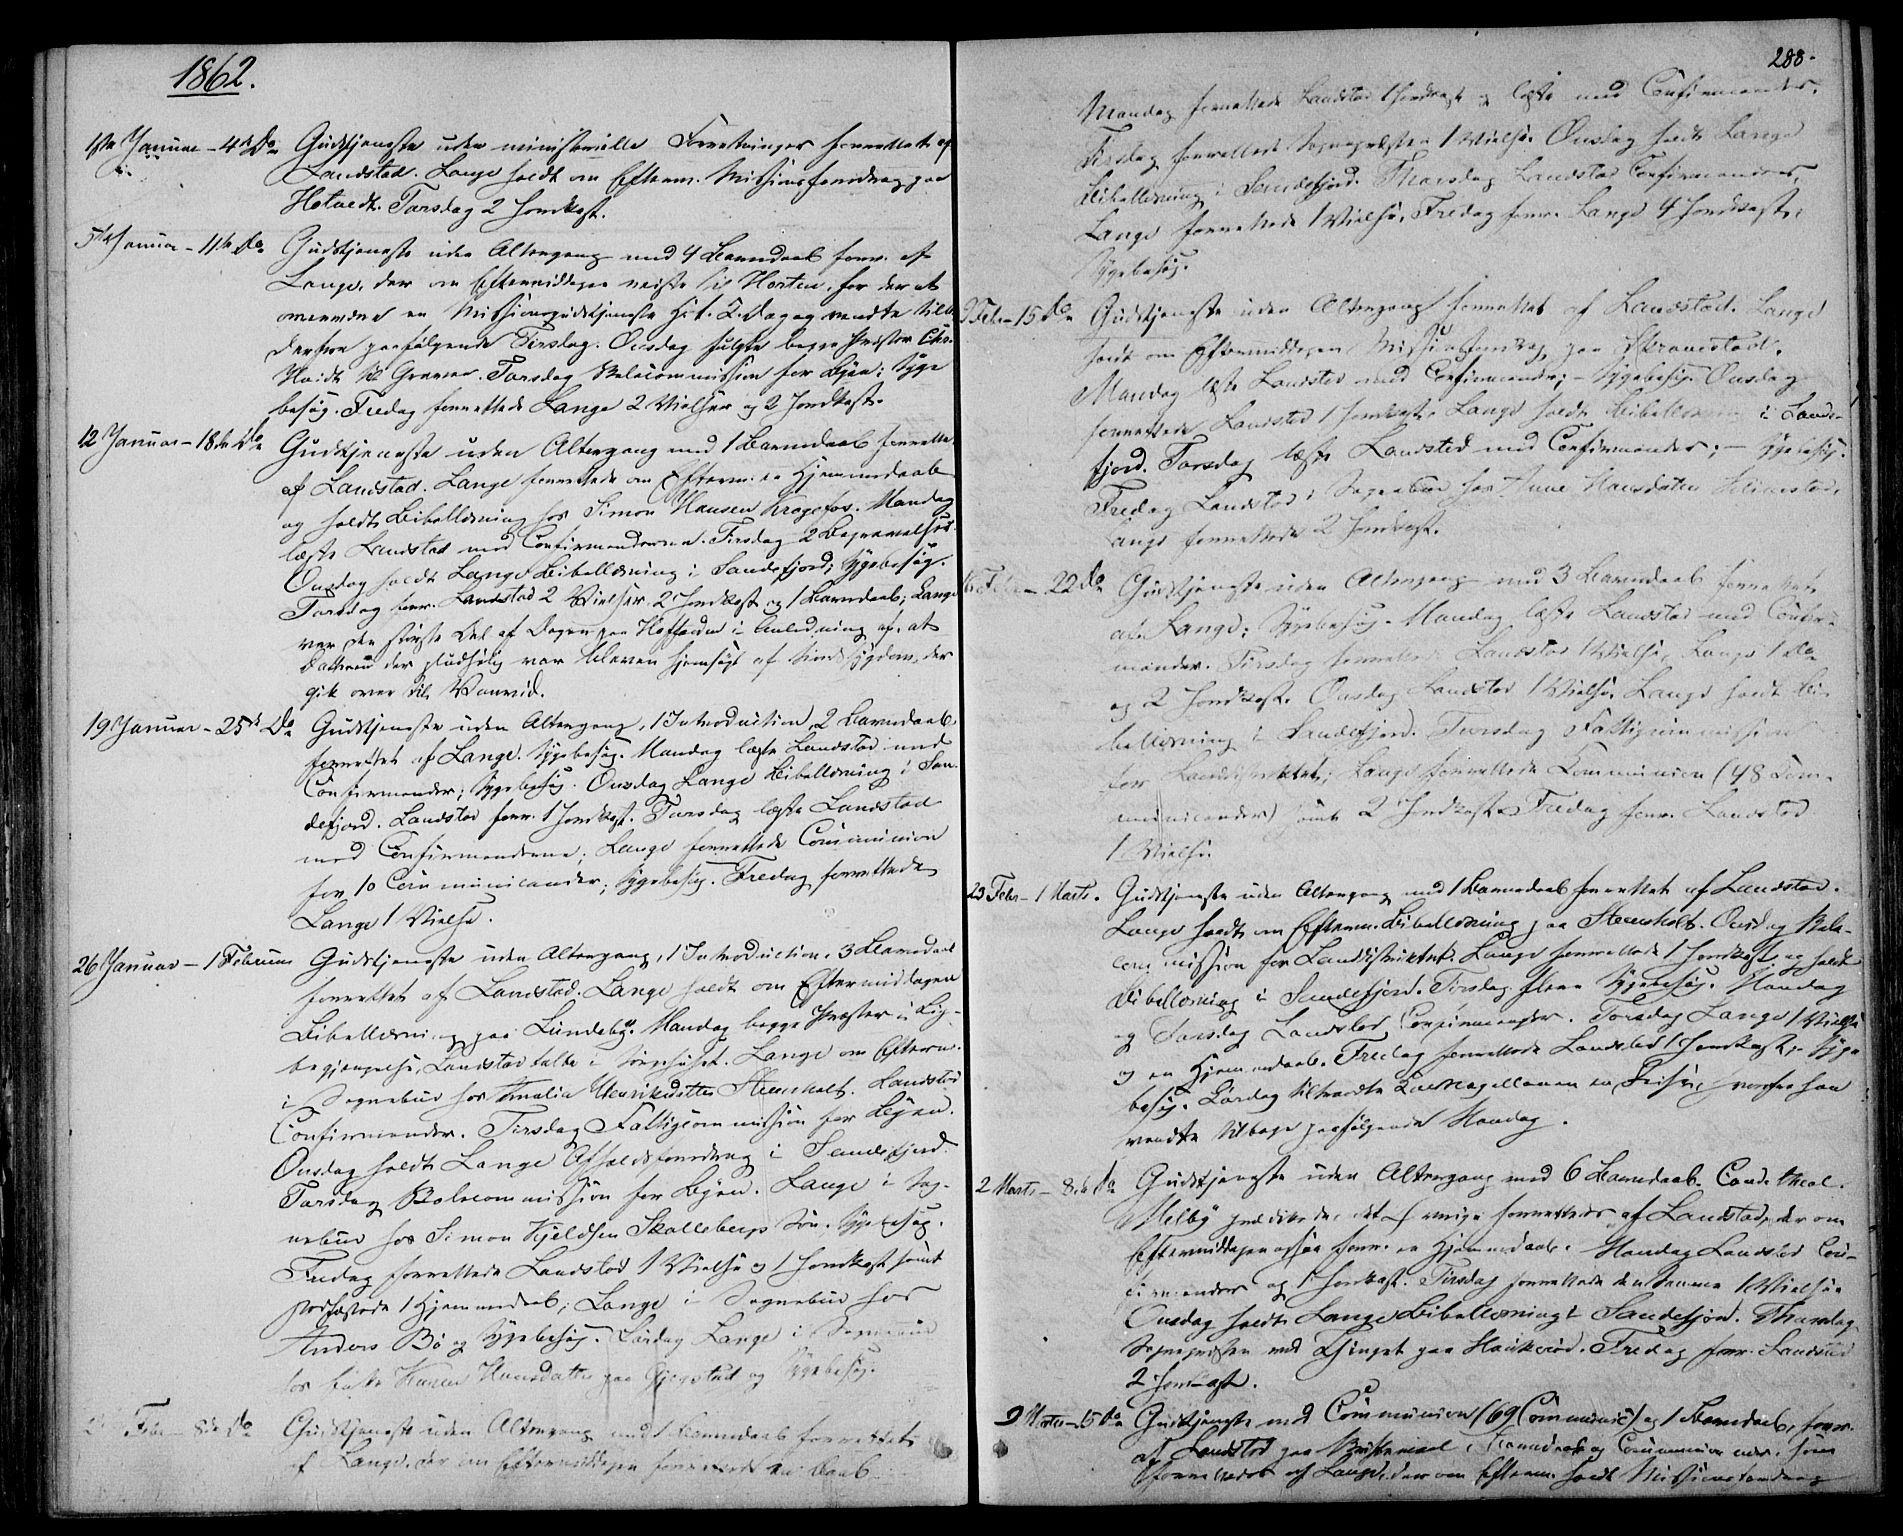 1862.
1ste Januar - 4de Do Gudstjeneste uden ministerielle Forretninger forrettet af
Landstad. Lange holdt om Efterm. Missionsforedrag paa
Hotvedt. Torsdag 2 Jordkast.
5te Januar - 11te Do Gudstjeneste uden Altergang med 4 Barnedaab forr. af
Lange, der om Eftermiddagen reiste til Horten, for der at
overvære en Missionsgudstjeneste H. 3 K. Dag og vendte tilb.
derfra paafølgende Tirsdag. Onsdag fulgte begge Præster
til Graven. Torsdag Skolecommission for Byen; Syge
besøg. Fredag forrettede Lange 2 Vielser og 2 Jordkast.
12 Januar - 18de Do Gudstjeneste uden Altergang med 1 Barnedaab forrettet
af Landstad. Lange forrettede om Efterm. en Hjemmedaab
og holdt Bibellæsning hos Simon Hansen Krogefos. Mandag
læste Landstad med Confirmanderne. Tirsdag 2 Begravelser.
Onsdag holdt Lange Bibellæsning i Sandefjord; Sygebesøg.
Torsdag forr. Landstad 2 Vielser, 2 Jordkast og 1 Barnedaab; Lange
var den største Del af Dagen paa i Anledning af, at
Datteren der pludselig var bleven hjemsøgt af Sindssygdom, der
gik over til Vanvid.
19 Januar - 25de Do Gudstjeneste uden Altergang, 1 Introduction, 2 Barnedaab
forrettet af Lange. Sygebesøg. Mandag læste Landstad med
Confirmander; Sygebesøg. Onsdag Lange Bibellæsning i San-
defjord. Landstad forr. 1 Jordkast. Torsdag læste Landstad
med Confirmanderne; Lange forrettede Communion
for 10 Communicander; Sygebesøg. Fredag forrettede
Lange 1 Vielse.
26 Januar - 1 Februar Gudstjeneste uden Altergang, 1 Introduction, 3 Barnedaab
forrettet af Landstad. Lange holdt om Eftermiddagen
Bibellæsning paa Lundeby. Mandag begge Præster i Lig-
begjængelse, Landstad talte i Sørgehuset. Lange om Efterm.
i Sognebud hos Amalia Henriksdatter Steensholt. Landstad
Confirmander. Tirsdag Fattigcommission for Byen.
Onsdag holdt Lange Afholdsforedrag i Sandefjord.
Torsdag Skolecommission for Byen. Lange i Sog-
nebud hos Simon Kjeldsen Skallebergs Søn. Sygebesøg.
Fredag forrettede Landstad 1 Vielse og 1 Jordkast samt
stadfæstede 1 Hjemmedaab; Lange i Sognebud hos
Anders Bø og Sygebesøg. Lørdag Lange i Sognebud
hos Karen Hansdatter paa og Sygebesøg.
Febr - 8de Do Gudstjeneste uden Altergang med 1 Barnedaab forrettet
af Lange, der om Eftermiddagen forrettede en Daab
288.
Mandag forrettede Landstad 1 Jordkast og læste med Confirmander.
Tirsdag forrettede Sognepræsten 1 Vielse. Onsdag holdt Lange
Bibellæsning i Sandefjord. Thorsdag Landstad Confirmander,
Lange forrettede 1 Vielse, Fredag forr. Lange 4 Jordkast;
Sygebesøg.
9 Febr - 15 Do Gudstjeneste uden Altergang forrettet af Landstad. Lange
holdt om Eftermiddagen Missionsforedrag paa
Mandag læste Landstad med Confirmander; - Sygebesøg. Onsdag
forrettede Landstad 1 Jordkast. Lange holdt Bibellæsning i Sande-
fjord. Torsdag læste Landstad med Confirmander; - Sygebesøg.
Fredag Landstad i Sognebud hos Anne Hansdatter
Lange forrettede 2 Jordkast.
16 Febr - 22 Do Gudstjeneste uden Altergang med 3 Barnedaab forrettet
af Lange; Sygebesøg. Mandag læste Landstad med Confir-
mander. Tirsdag forrettede Landstad 1 Vielse, Lange 1 do
og 2 Jordkast. Onsdag Landstad 1 Vielse. Lange holdt Bi-
bellæsning i Sandefjord. Torsdag Fattigcommission
for Landdistriktet; Lange forrettede Communion (48 Com-
municander) samt 2 Jordkast. Fredag forr. Landstad
1 Vielse.
23 Febr - 1 Marts. Gudstjeneste uden Altergang med 1 Barnedaab forrettet af Landstad.
Lange holdt om Efterm. Bibellæsning paa Steensholt. Onsdag Skole-
commission for Landdistriktet. Lange forrettede 1 Jordkast og holdt
Bibellæsning i Sandefjord. Tirsdag Sygebesøg. Mandag
og Torsdag Landstad Confirmander. Torsdag Lange 1 Vielse
og en Hjemmedaab. Fredag forrettede Landstad 1 Jordkast; Syge
besøg. Lørdag tiltraadte en Reise, hvorfra han
vendte tilbage paafølgende Mandag.
2 Marts - 8de Do Gudstjeneste uden Altergang med 6 Barnedaab. Cand. theol.
Melby prædikede, det Øvrige forrettedes af Landstad, der om
Eftermiddagen ogsaa forr. en Hjemmedaab. Mandag Landstad Con-
firmander og 1 Jordkast. Tirsdag forrettede den Samme 1 Vielse.
Onsdag holdt Lange Bibellæsning i Sandefjord. Thorsdag
Sognepræsten ved Thinget paa Haukerød. Fredag forr. Landstad
2 Jordkast.
9 Marts - 15 Do Gudstjeneste med Communion (69 Communic) og 1 Barnedaab, forr.
af Landstad paa Barnedaab og Communion som
forrettedes af Lange, der om Efterm. holdt Missionsforedrag